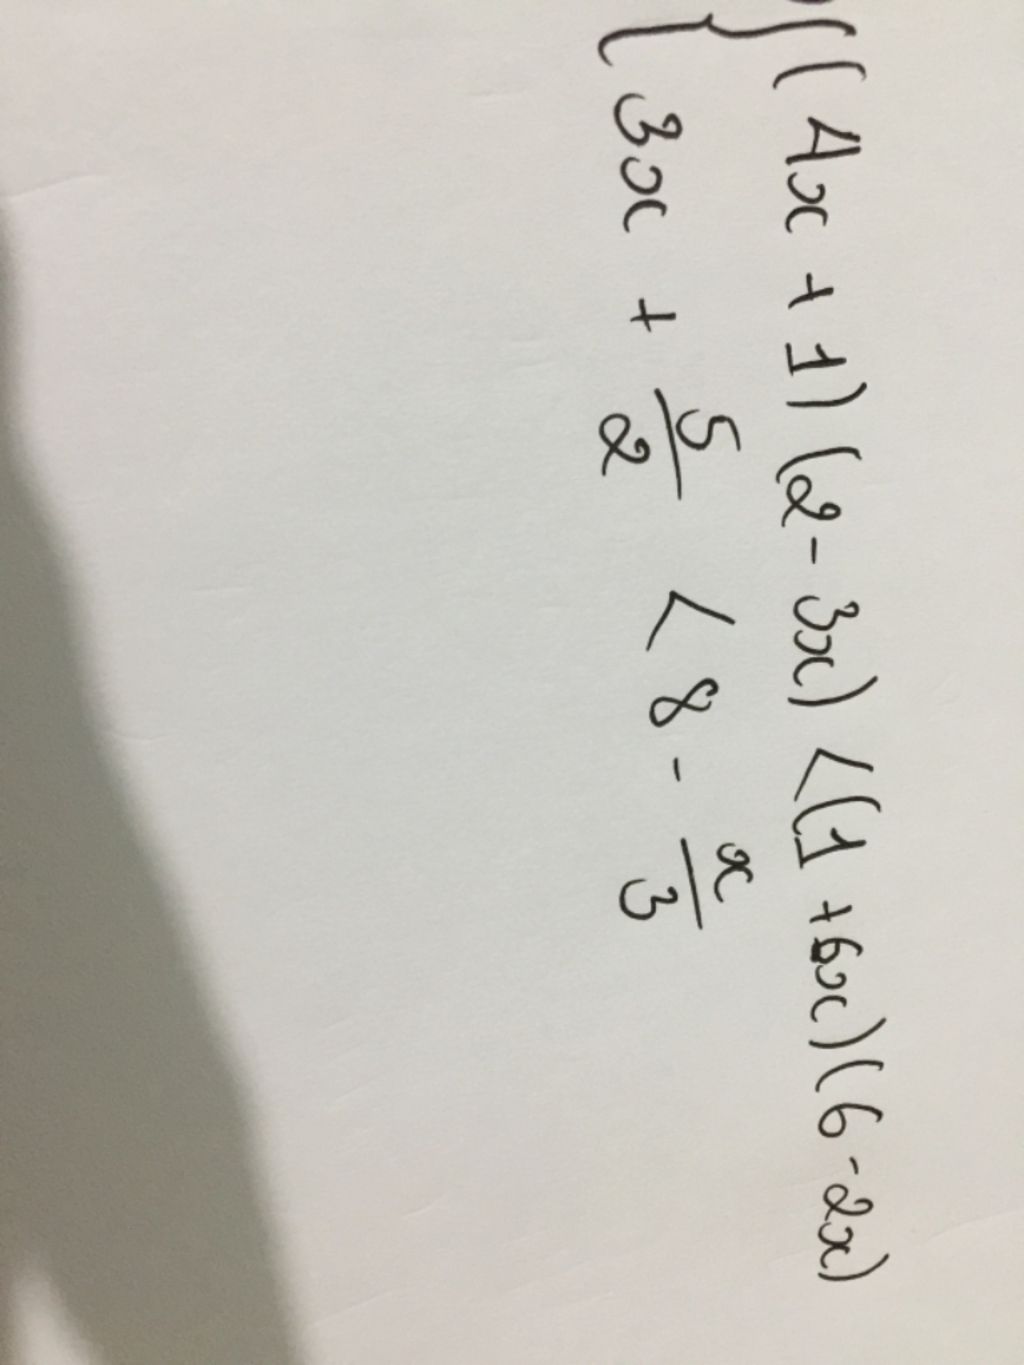 { (4x + 1)(2 - 3x) < (1 + 6x)(6 - 2x)
3x + 5/2 < 8 - x/3